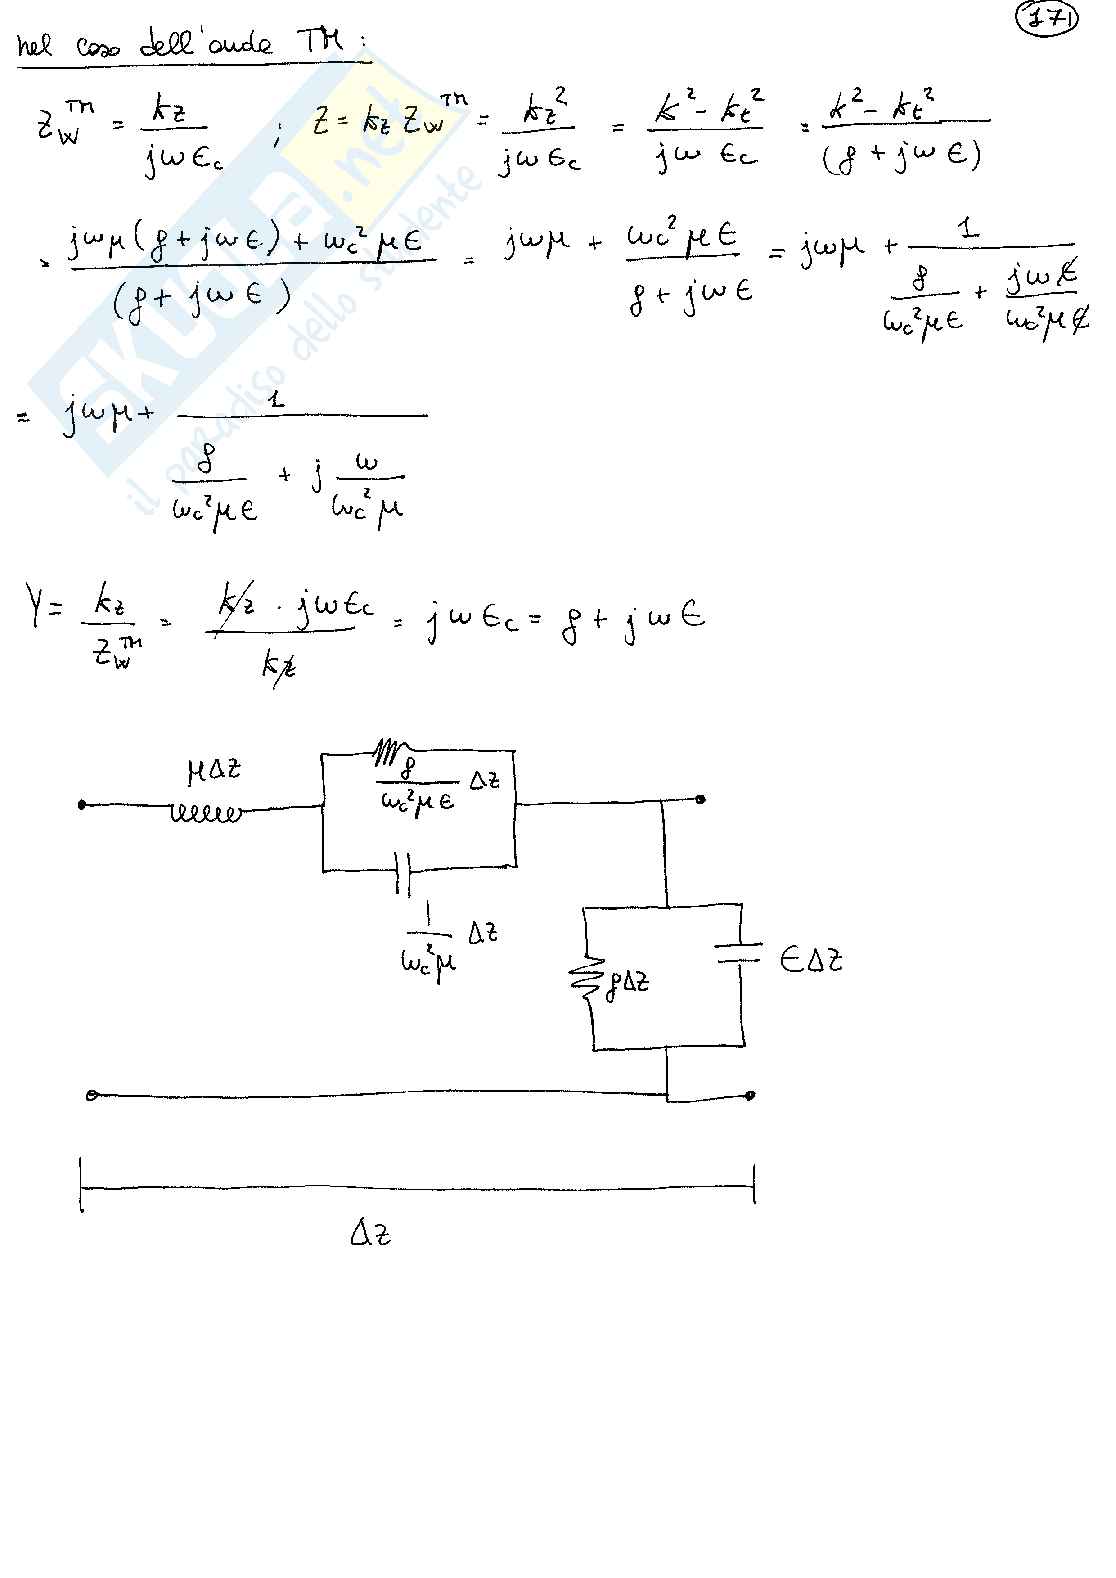 171
nel caso dell'onda TM:
Z_W^TM = kz / jωϵc ; Z = kz Z_W^TM = kz² / jωϵc = k² - kt² / jωϵc = k² - kt² / (g + jωϵ)
= jωμ(g + jωϵ) + ωc²μϵ / (g + jωϵ) = jωμ + ωc²μϵ / g + jωϵ = jωμ + 1 / g/ωc²μϵ + jωϵ/ωc²μϵ
= jωμ + 1 / g/ωc²μϵ + j ω/ωc²μ
Y = kz / Z_W^TM = kz · jωϵc / kz = jωϵc = g + jωϵ
μΔz
g/ωc²μϵ Δz
1/ωc²μ Δz
gΔz
ϵΔz
Δz
skuola.net
il paradiso dello studente